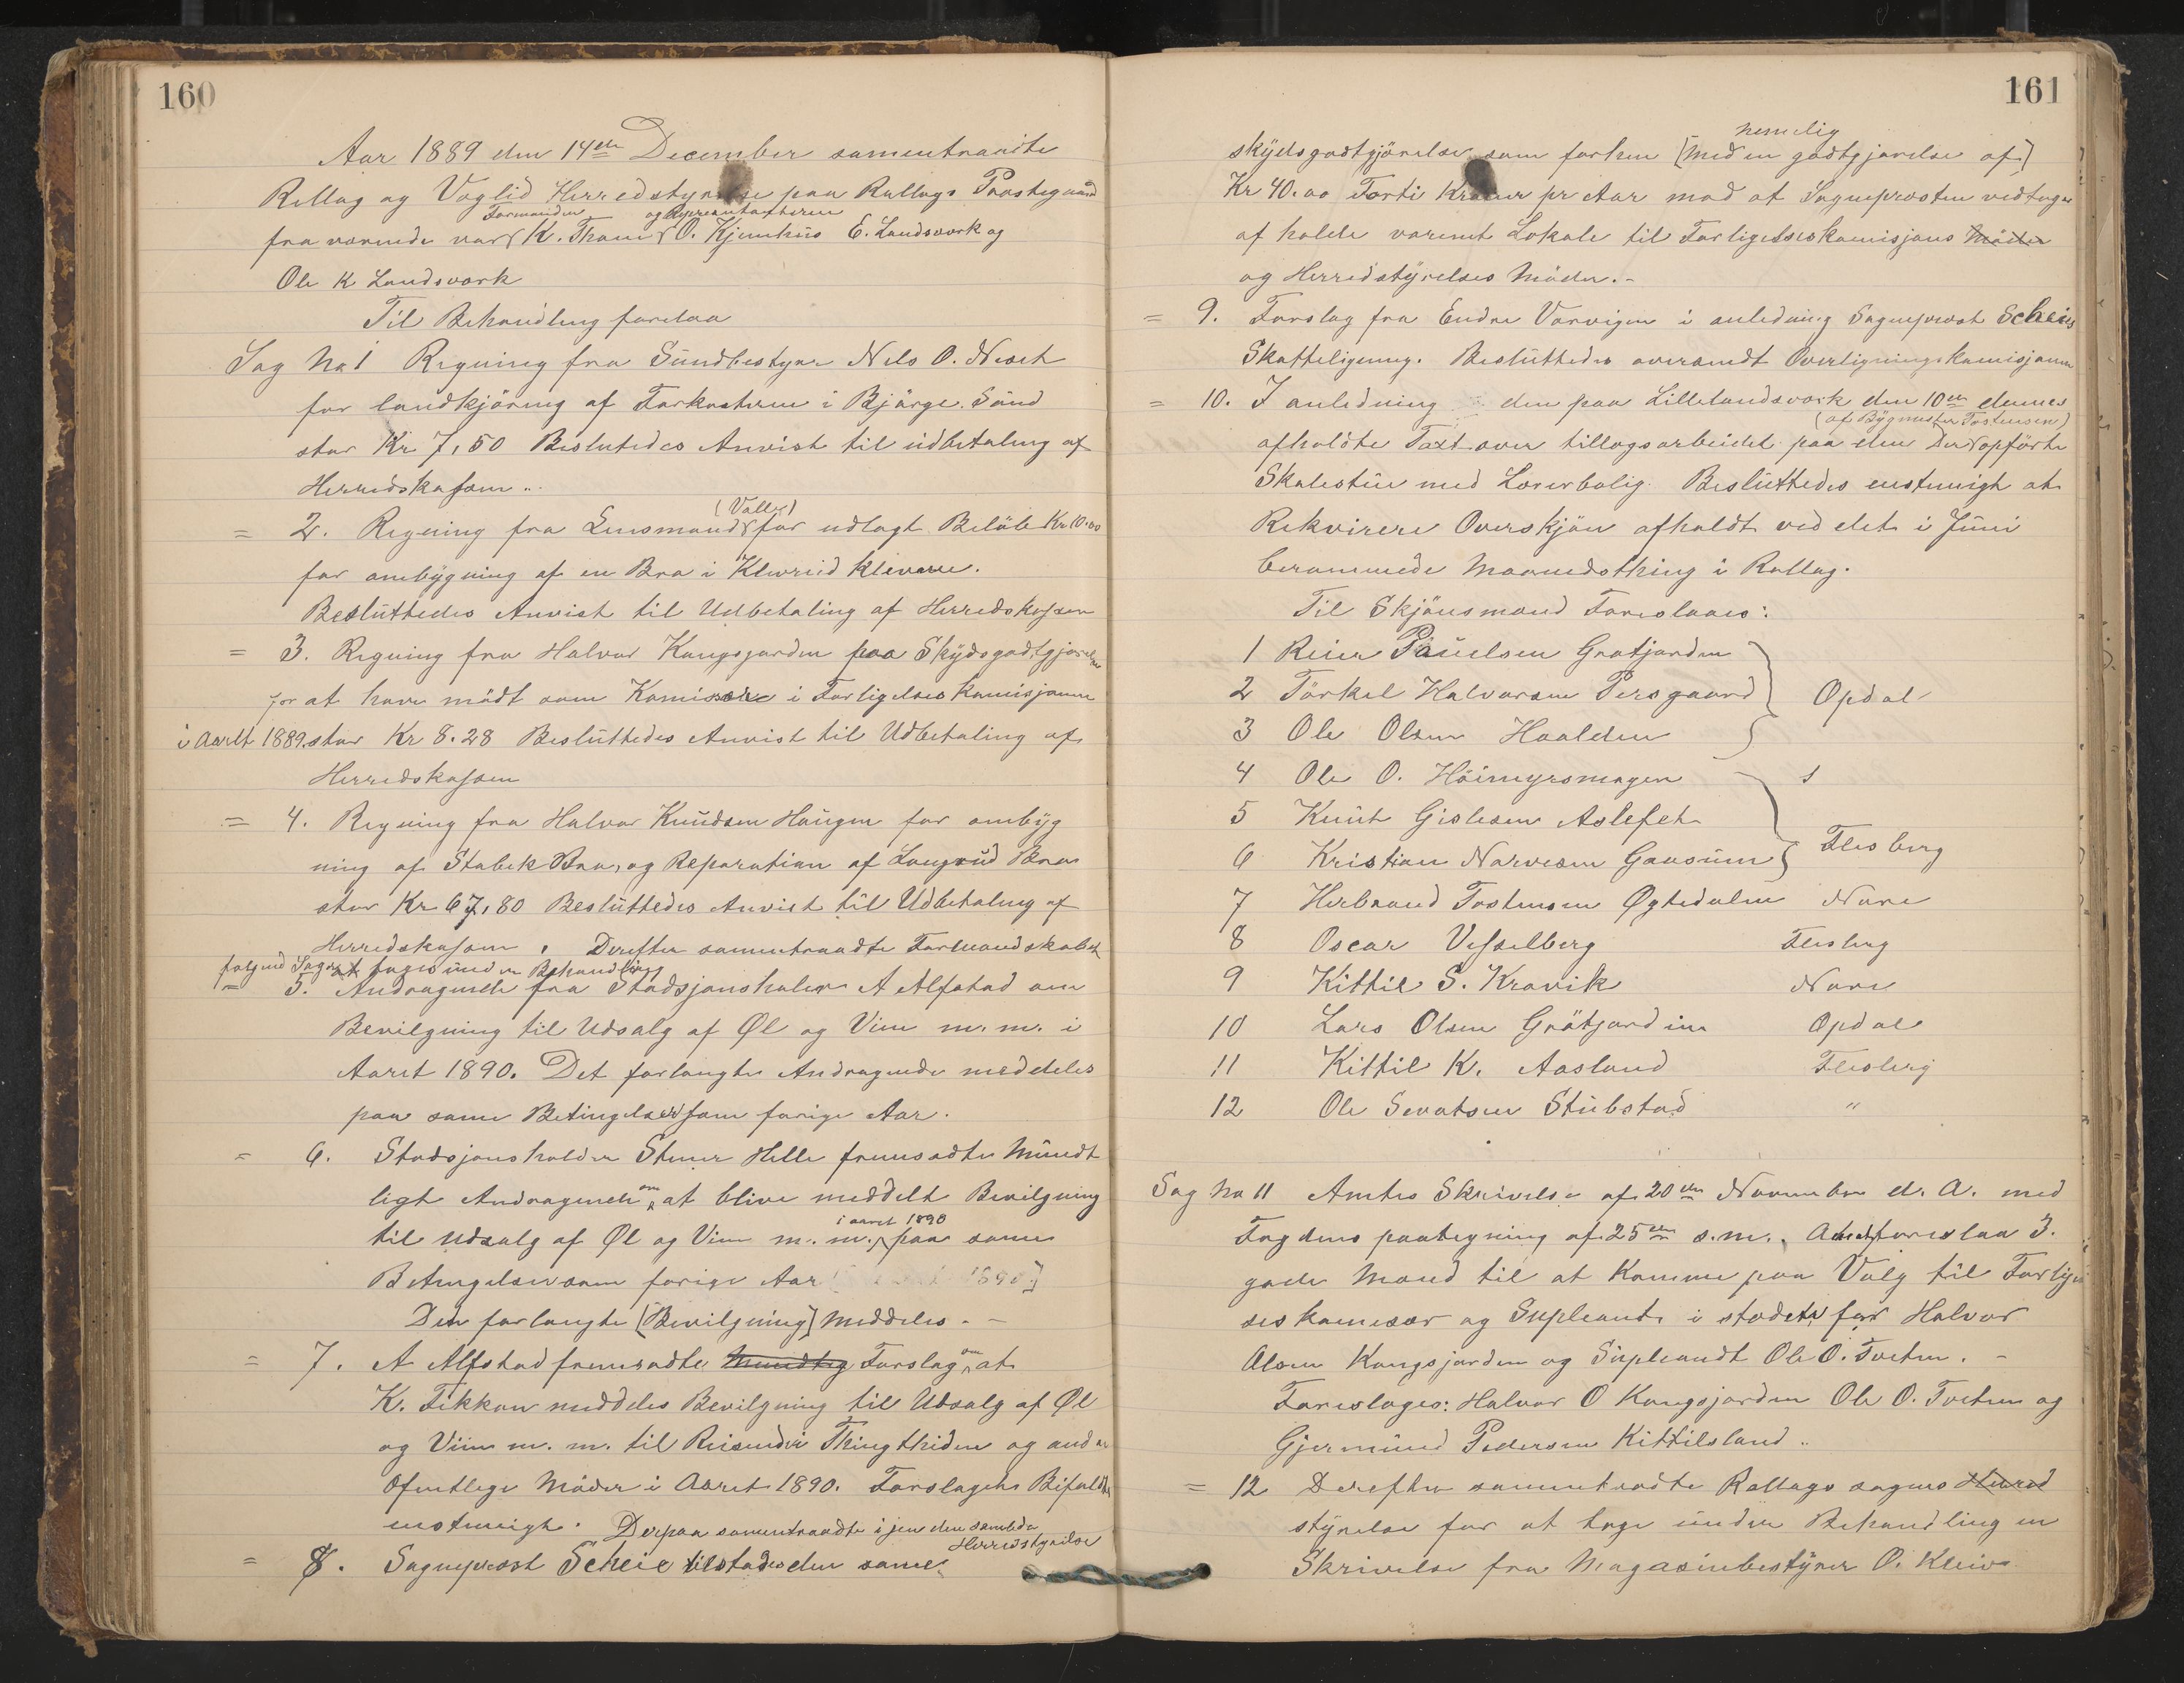 160
Aar 1889 den 14de December samentraadte
Rollag og Veglid Herredstyrelse paa Rollags Prestegaard
Formanden og Representanterne
fra værende var K. Traaen O. Kjemhus E. Landsverk og
Ole K Landsverk
Til Behandling forelaa
Sag No 1 Regning fra Sundbestyrer Nels O. Neset
for landkjöring af Farkosterne i Bjärge Sund
stor Kr 7,50 Beslutedes Anvist til udbetaling af
Herredskassen..
(Valle)
= 2. Regning fra Lensmand for udlagt Belöb Kr 10.00
for ombygning af en Bro i Klevrud klivane.
Besluttedes Anvist til Udbetaling af Herredskassen
= 3. Regning fra Halvor Kongsjorden paa Skydsgodtgjörelse
for at have mödt som Komisær i Forligelses Komisjonen
i Aaret 1889. stor Kr 8.28 Besluttedes Anvist til Udbetaling af
Herredskassen
= 4. Regning fra Halvor Knudsen Haugen for ombyg
ning af Stabek Bro, og Reparation af Langrud Bro
stor Kr 67,80 Besluttedes Anvist til Udbetaling af
Herredskassen. Derefter samentraadte Formandskabet
følgend Sager at tages under Behandling
= 5. Andragende fra Stadsjonsholder A Alfstad om
Bevilgning til Udsalg af Øl og Vin m. m. i
Aaret 1890. Det forlangte Andragende meddeles
paa samme Betingelser som forige Aar.
= 6. Stadsjonsholder Stener Helle fremsadte Mundt
ligt Andragende om at blive meddelt Bevilgning
i aaret 1890
til Udsalg af Øl og Vin m. m. paa samme
Betingelser som forige Aar 1890]
Den forlangte [Bevilgning] Meddeles. -
= 7. A Alfstad fremsadte Mundtlig Forslag om at
K. Fikkan meddeles Bevilgning til Udsalg af Øl
og Viin m. m. til Reisende i Thingthiden og andre
Ofentlege Möder i Aaret 1890. Forslaget Bifaldtes
enstemigt. Derpaa samentraadte i jen den samlede
Herredstyrelse
= 8. Sogneprost Scheie tilstades den same
161
nemelig
skydsgodtgjörelse som forhen [med en godtgjørelse af]
Kr 40.00 Forti Kroner pr Aar mod at Sogneprosten vedtager
at holde varmt Lokale til Forligelseskomisjons Möder
og Herredstyrelses Möder.-
= 9. Forslag fra Endre Vorvigen i anledning Sogneprost Scheies
Skatteligning. Besluttedes oversendt Overligningskomisjonen
= 10. I anledning den paa Lillelandsverk den 10de dennes
(af Bygmester Tostensen)
afholdte Taxt over tillægsarbeidet paa den Der opförte
Skolestue med Lærerbolig. Besluttedes enstemigt at
Rekvirere Overskjön afholdt ved det i Juni
berammede Maanedsthing i Rollag.
Til Skjönsmænd Foreslaaes:
1 Reier Paulsen Grotjorden
2 Törkel Halvorsen Persgaard Opdal
3 Ole Olsen Haalden
4 Ole O. Höimyrsmogen
5 Knut Gislesen Aslefet
6 Kristian Narvesen Gaasum Flesberg
7 Herbrand Tostensen Øgtedalen Nore
8 Oscar Vesselberg Flesberg
9 Kittil S. Kravik Nore
10 Lars Olsen Grötjorden Opdal
11 Kittil K. Aasland Flesberg
12 Ole Sevatsen Stubstad "
Sag No 11 Amtes Skrivelse af 20de November d. A. med
Fogdens paategning af 25de s.m. foreslaa 3.
gode Mænd til at Komme paa Valg til Forligel
ses komisær og Supleant i stedet for Halvor
Olsen Kongsjorden og Supleandt Ole O. Tveten. -
Foreslages: Halvor O Kongsjorden Ole O. Tveten og
Gjermund Pedersen Kittilsland..
= 12 Derefter samentraadte Rollags sogns Herred
styrelse for at tage under Behandling en
Skrivelse fra Magasinbestyrer O. Kleive